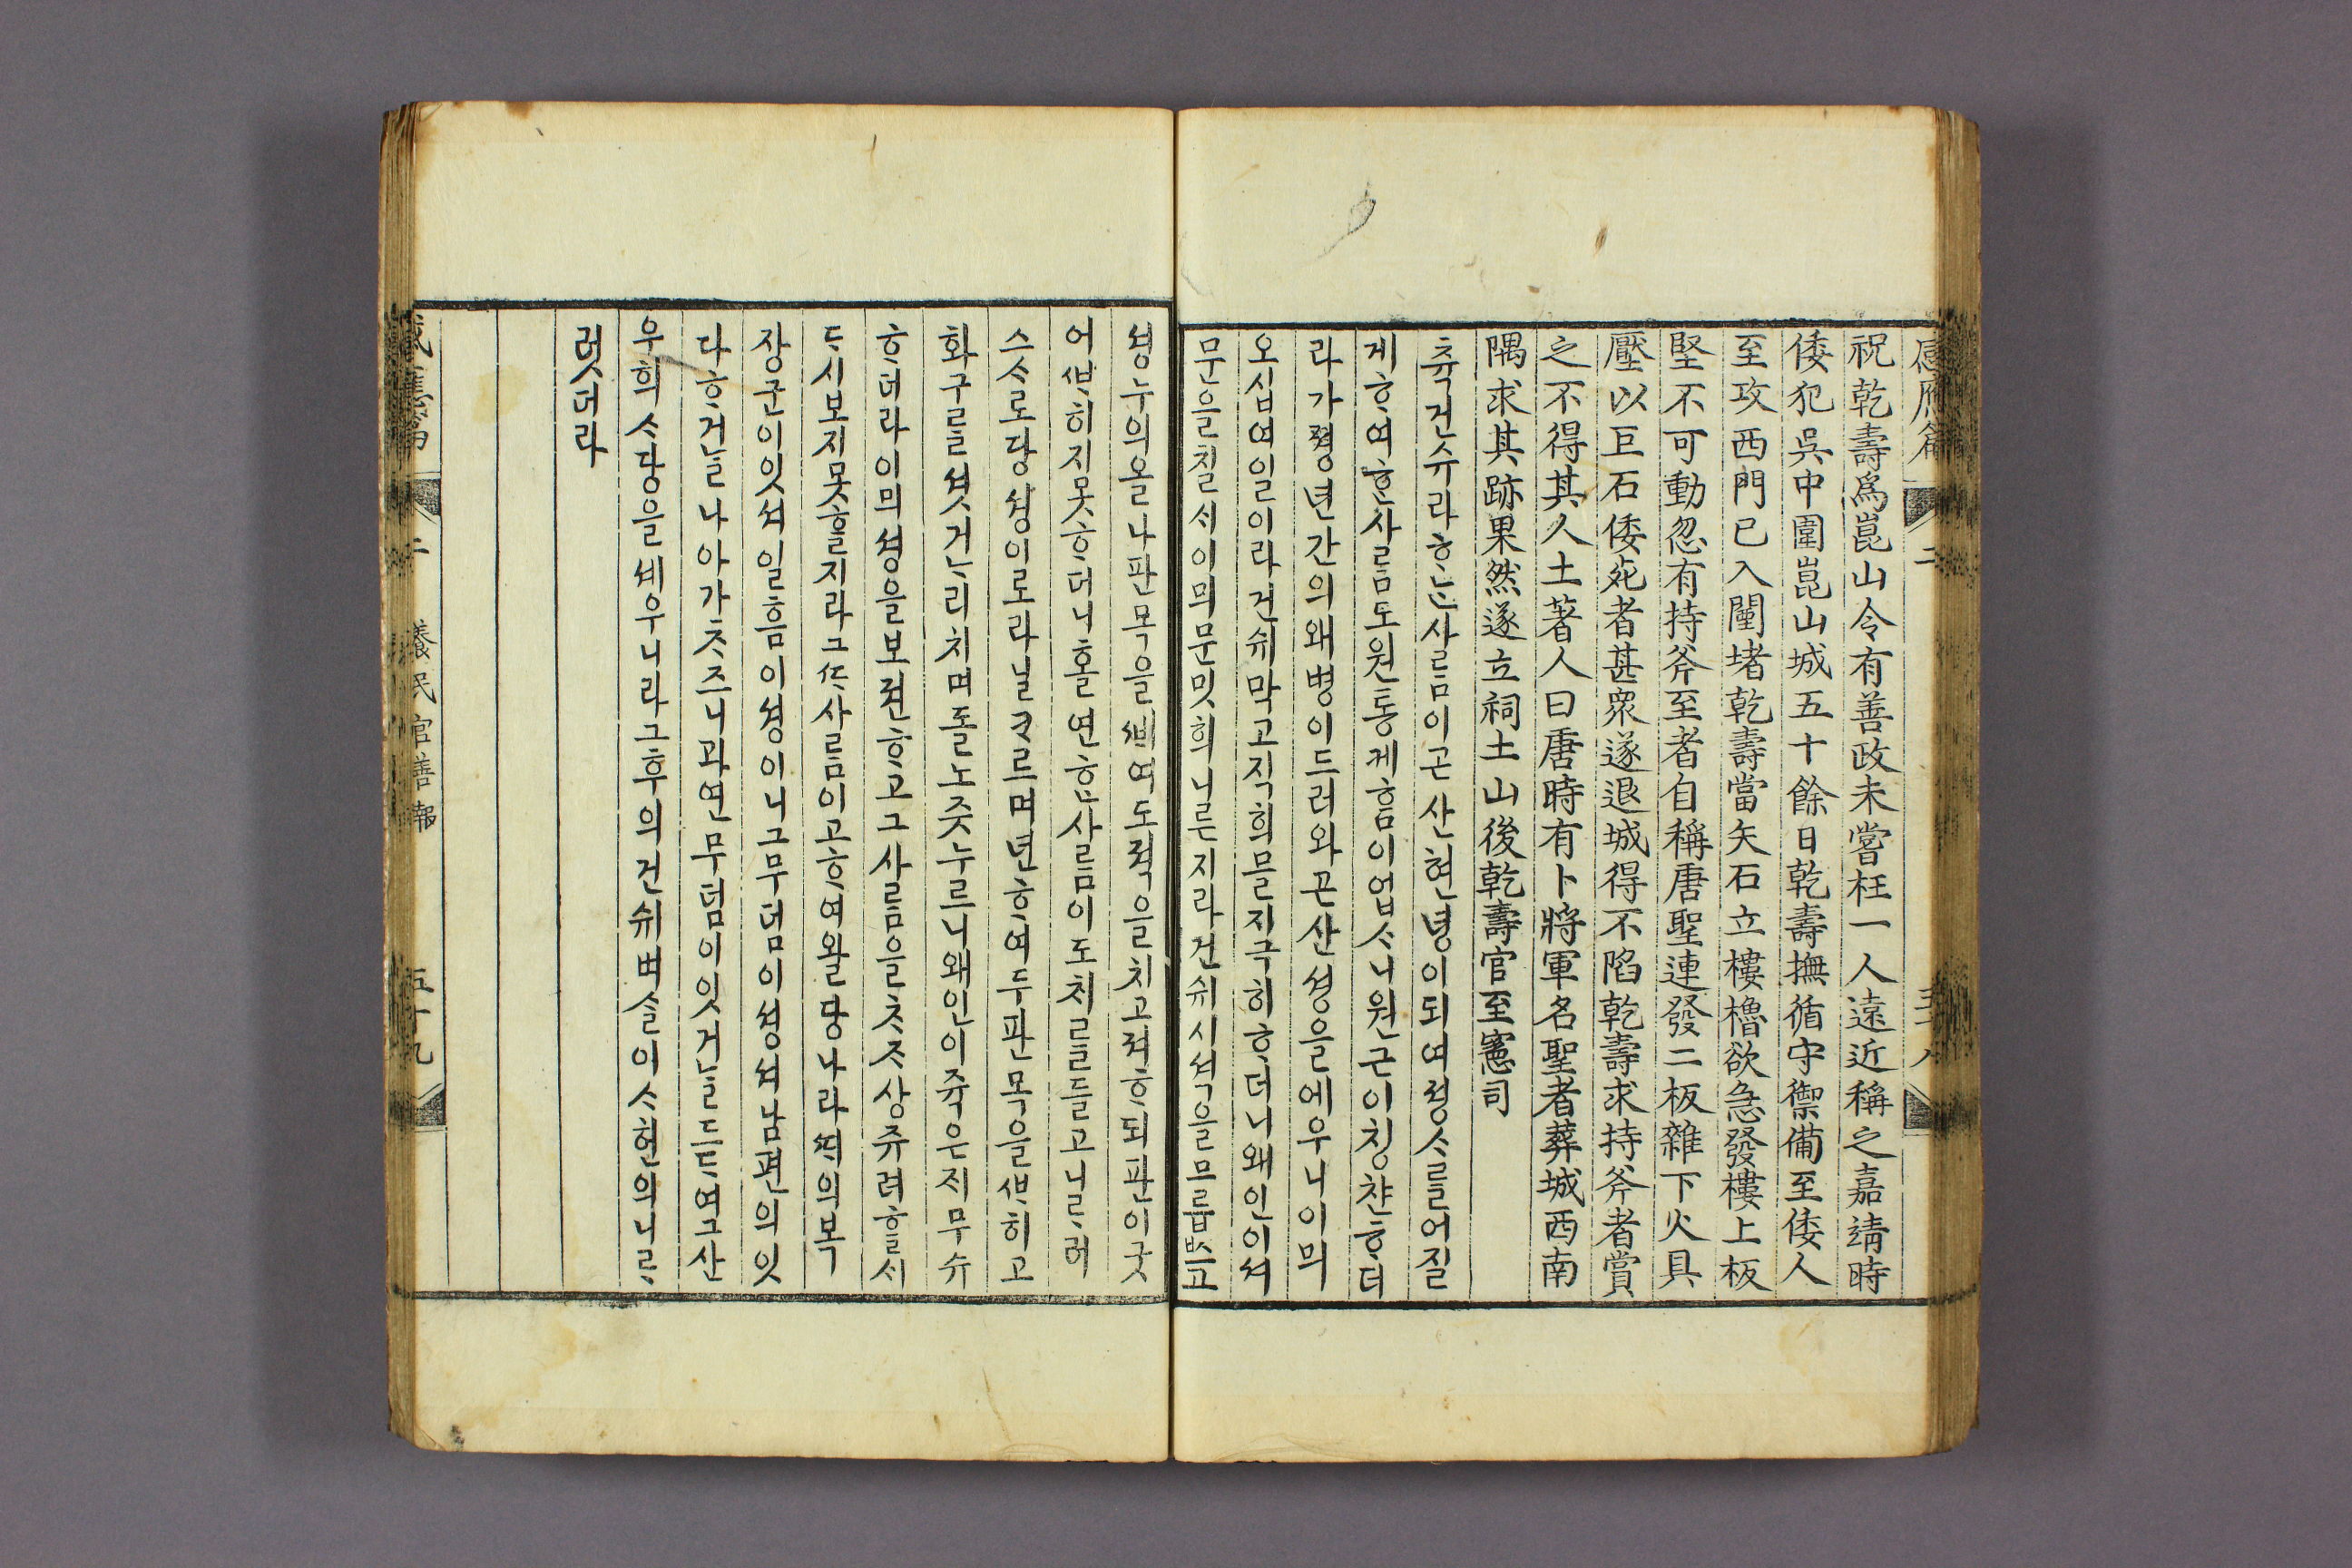 感應篇 二 五十八
祝乾壽爲崑山令有善政未嘗枉一人遠近稱之嘉靖時
倭犯吳中圍崑山城五十餘日乾壽撫循守禦備至倭人
至攻西門已入闉堵乾壽當矢石立樓櫓欲急發樓上板
堅不可動忽有持斧至者自稱唐聖連發二板雜下火具
壓以巨石倭死者甚衆遂退城得不陷乾壽求持斧者賞
之不得其人土著人曰唐時有卜將軍名聖者葬城西南
隅求其跡果然遂立祠土山後乾壽官至憲司
츅건슈라ᄒᆞᄂᆞᆫ사ᄅᆞᆷ이곤산현녕이되여졍ᄉᆞᄅᆞᆯ어질
게ᄒᆞ여ᄒᆞᆫ사ᄅᆞᆷ도원통케ᄒᆞᆷ이업ᄉᆞ니원근이칭챤ᄒᆞ더
라가졍년간의왜병이드러와곤산셩을에우니이믜
오십여일이라건쉬막고직희믈지극히ᄒᆞ더니왜인이셔
문을칠ᄉᆡ이믜문밋희니른지라건쉬시셕을므릅ᄡᅳ고
셩누의올나판목을ᄲᅢ여도젹을치고져ᄒᆞ되판이굿
어ᄲᅡ히지못ᄒᆞ더니홀연ᄒᆞᆫ사ᄅᆞᆷ이도ᄎᆡᄅᆞᆯ들고니ᄅᆞ러
스ᄉᆞ로당셩이로라닐ᄏᆞᄅᆞ며년ᄒᆞ여두판목을ᄲᅡ히고
화구ᄅᆞᆯ셧거ᄂᆞ리치며돌노즛누르니왜인이죽은ᄌᆡ무슈
ᄒᆞ더라이믜셩을보젼ᄒᆞ고그사ᄅᆞᆷ을ᄎᆞᄌᆞ상쥬려ᄒᆞᆯᄉᆡ
ᄃᆞ시보지못ᄒᆞᆯ지라그ᄯᅡ사ᄅᆞᆷ이고ᄒᆞ여왈당나라ᄯᆡ의복
쟝군이잇셔일홈이셩이니그무덤이셩셔남편의잇
다ᄒᆞ거ᄂᆞᆯ나아가ᄎᆞ즈니과연무덤이잇거ᄂᆞᆯ드ᄃᆡ여그산
우희ᄉᆞ당을셰우니라그후의건쉬벼슬이ᄉᆞ헌의니ᄅᆞ
럿더라
感應篇 二 養民官善報 五十九